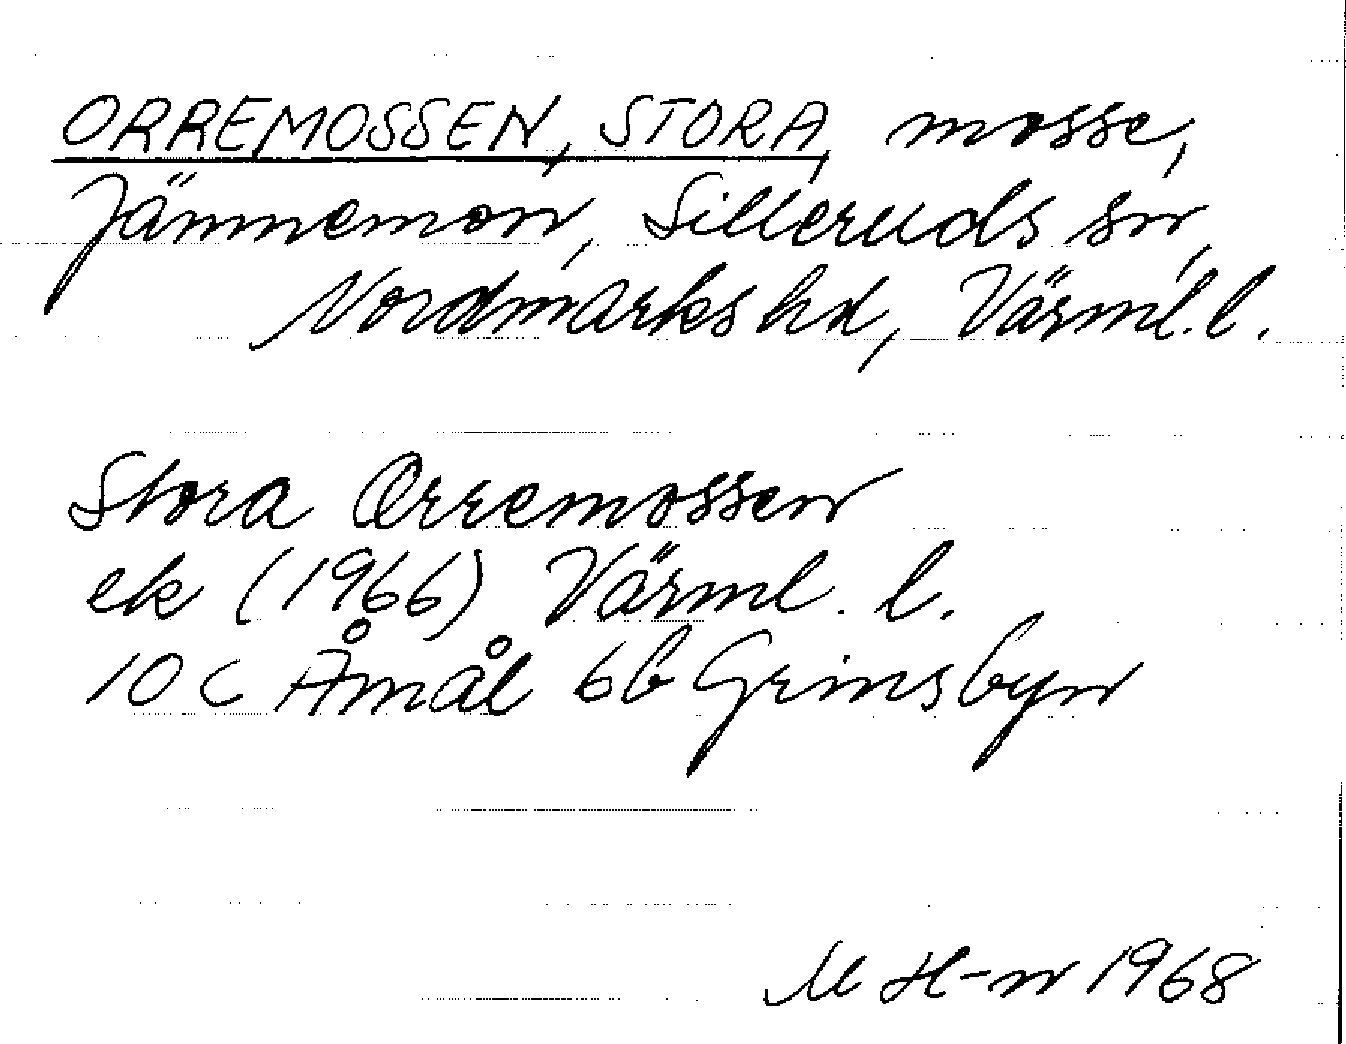 ORREMOSSEN, STORA, mosse,
Jämnemon, Silleruds sn,
Nordmarks hd, Värml. l.
Stora Orremossen
ek (1966) Värml. l.
10 C Åmål 6b Grinsbyn
M H-n 1968